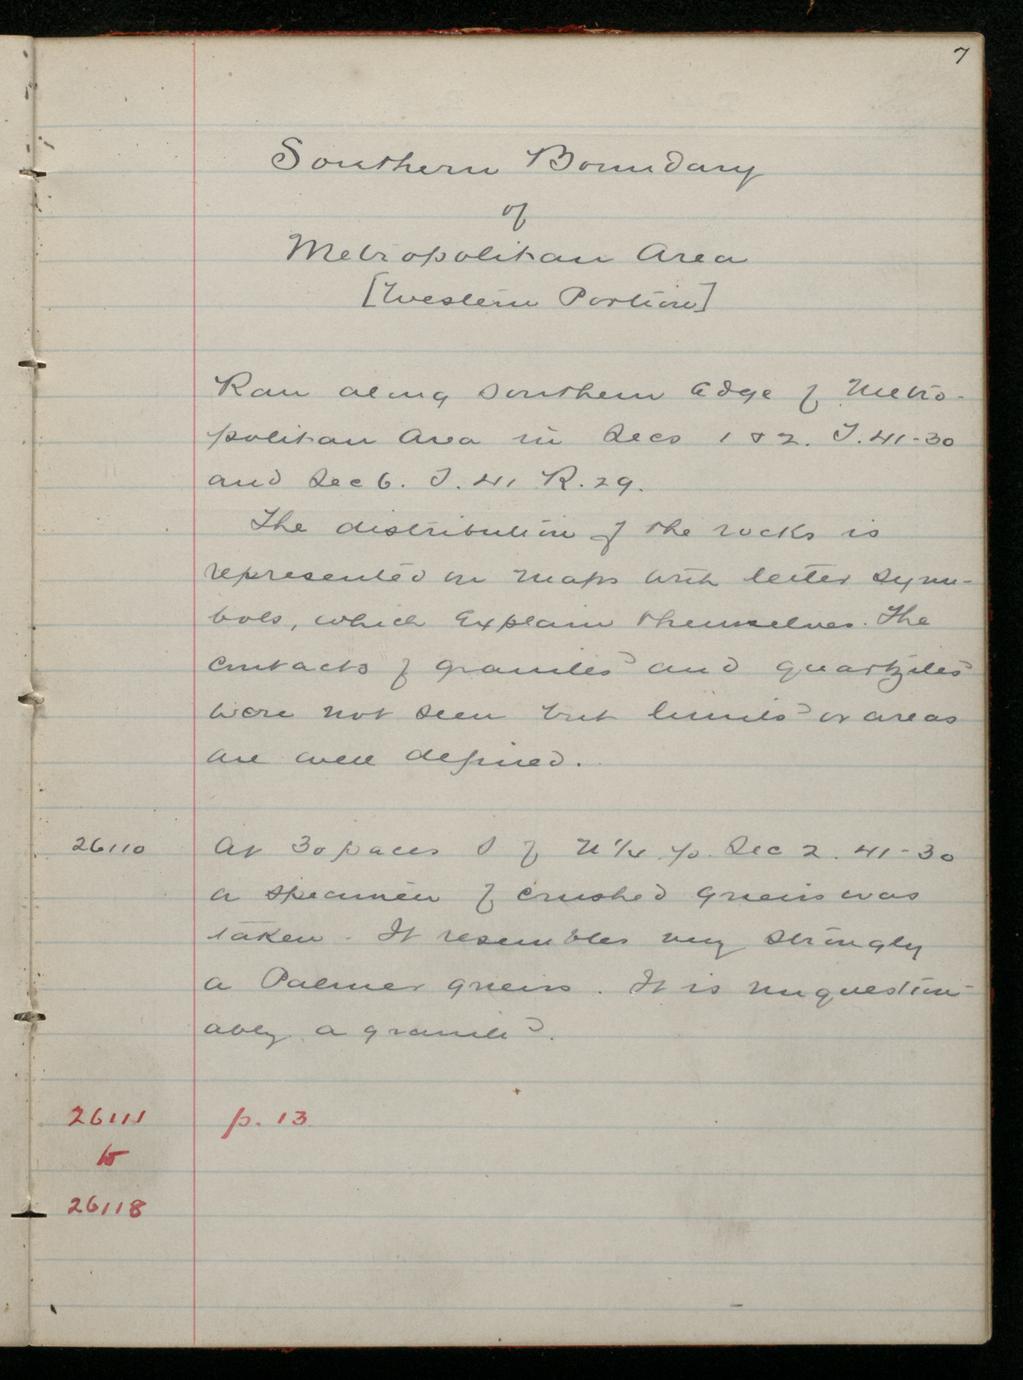 7
Southern Boundary
of
Metropolitan Area
[Western Portion]
Ran along Southern Edge of Metro-
politan Area in Secs 1 & 2. T. 41-30
and Sec 6. T. 41 R. 29.
The distribution of the rocks is
represented on maps with letter sym-
bols, which Explain themselves. The
contacts of granites and quartzites
were not seen but limits or areas
are well defined.
26110 At 30 paces S of N 1/4 p. Sec 2. 41-30
a specimen of crushed gneiss was
taken. It resembles very strongly
a Palmer gneiss. It is unquestion-
ably a granite.
26111 p. 13
to
26118